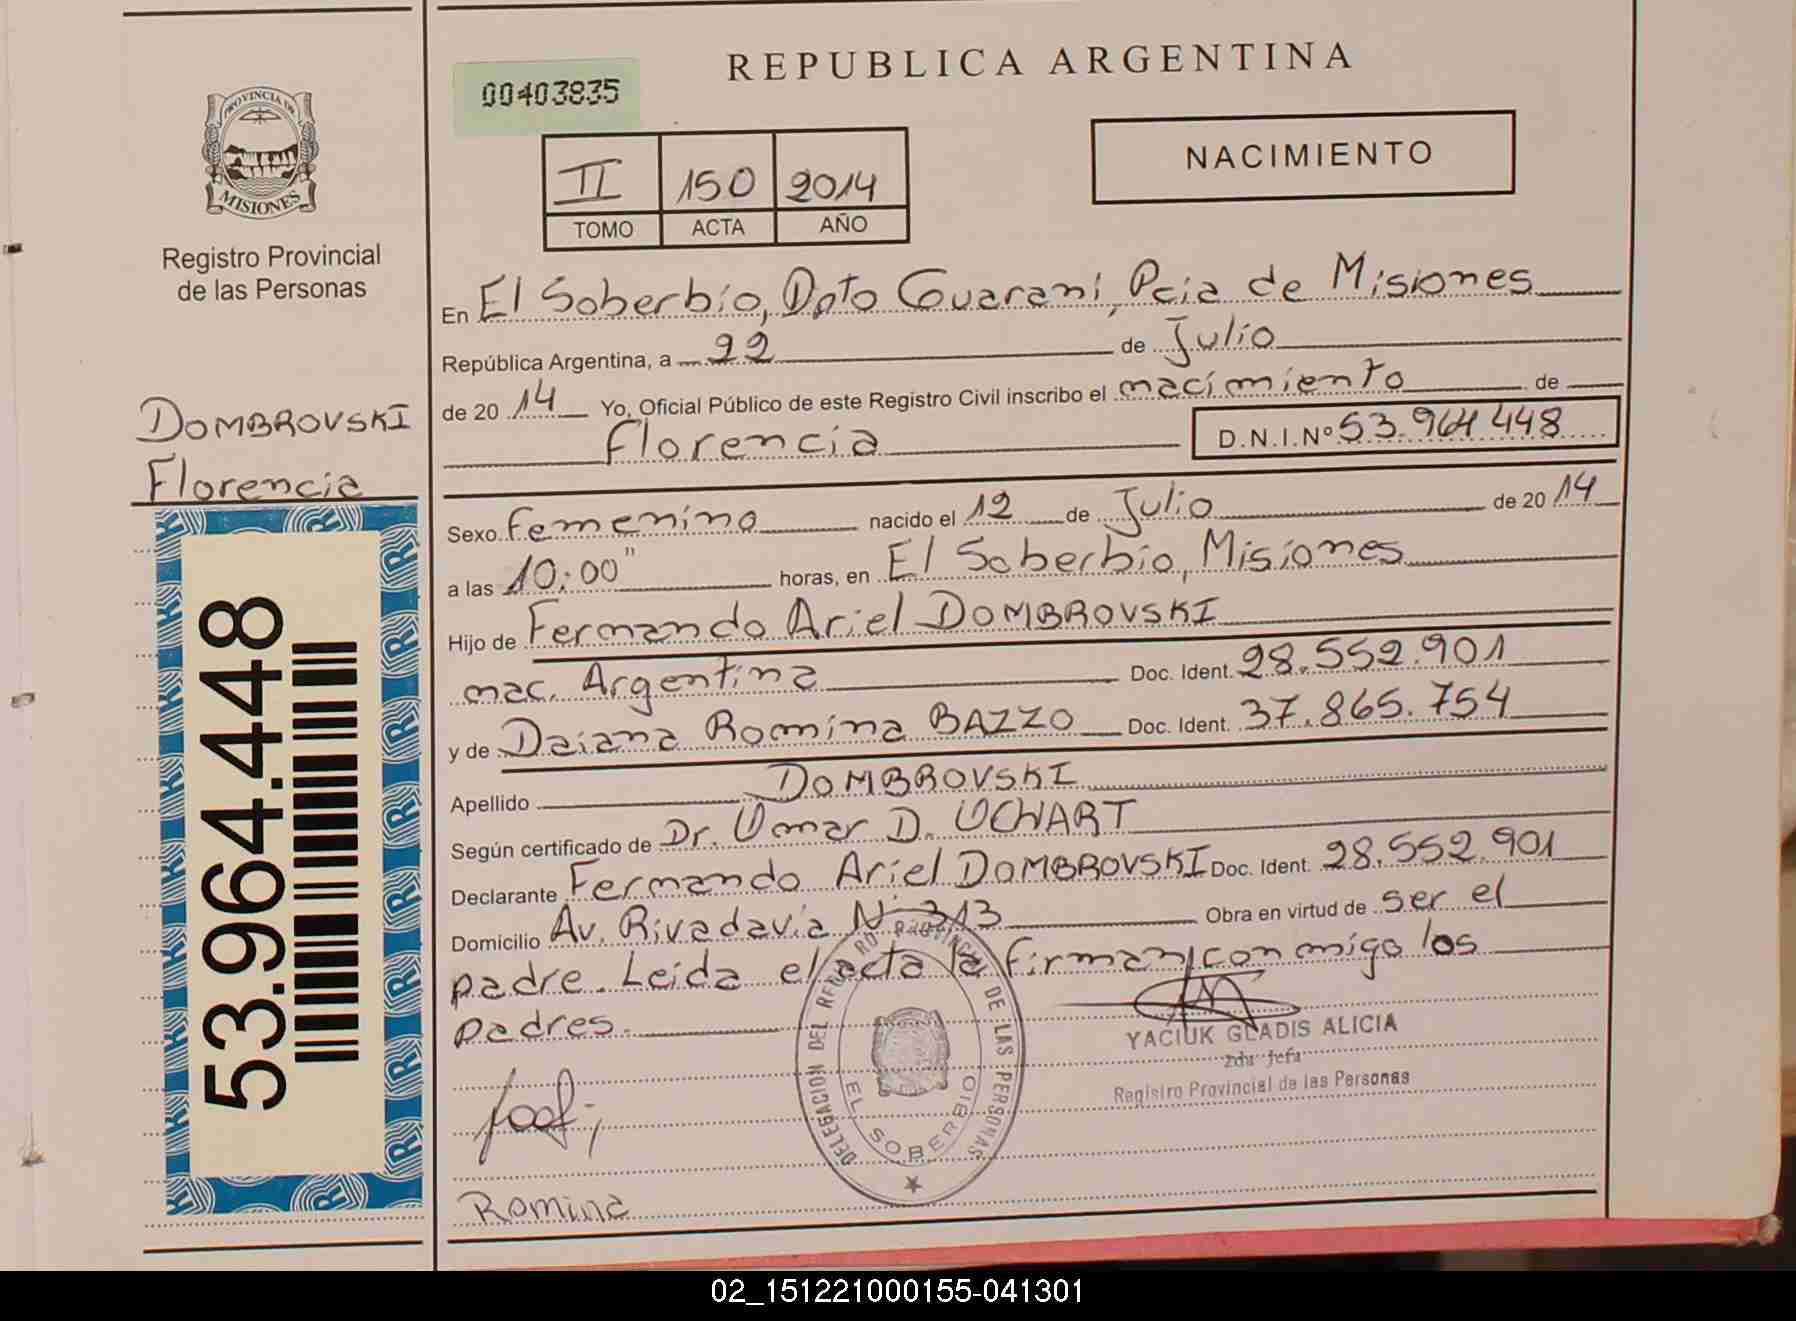 REPUBLICA ARGENTINA
00403835
NACIMIENTO
II 150 2014
TOMO ACTA AÑO
PROVINCIA DE
MISIONES
Registro Provincial
de las Personas
DOMBROVSKI
Florencia
53.964.448
En El Soberbio, Dpto Guaraní, Pcia de Misiones
República Argentina, a 22 de Julio
de 20 14 Yo, Oficial Público de este Registro Civil inscribo el nacimiento de
Florencia D.N.I.Nº 53.964 448
Sexo Femenino nacido el 12 de Julio de 20 14
a las 10:00" horas, en El Soberbio, Misiones
Hijo de Fernando Ariel DOMBROVSKI
nac. Argentina Doc. Ident. 28.552.901
y de Daiana Romina BAZZO Doc. Ident. 37.865.754
Apellido DOMBROVSKI
Según certificado de Dr. Omar D. UCHART
Declarante Fernando Ariel DOMBROVSKI Doc. Ident. 28.552.901
Domicilio Av. Rivadavia Nº 313 Obra en virtud de ser el
padre. Leida el acta la firman conmigo los
padres.
DELEGACION DEL REGISTRO PROVINCIAL DE LAS PERSONAS
EL SOBERBIO
YACIUK GLADIS ALICIA
2da Jefa
Registro Provincial de las Personas
Romina
02_151221000155-041301